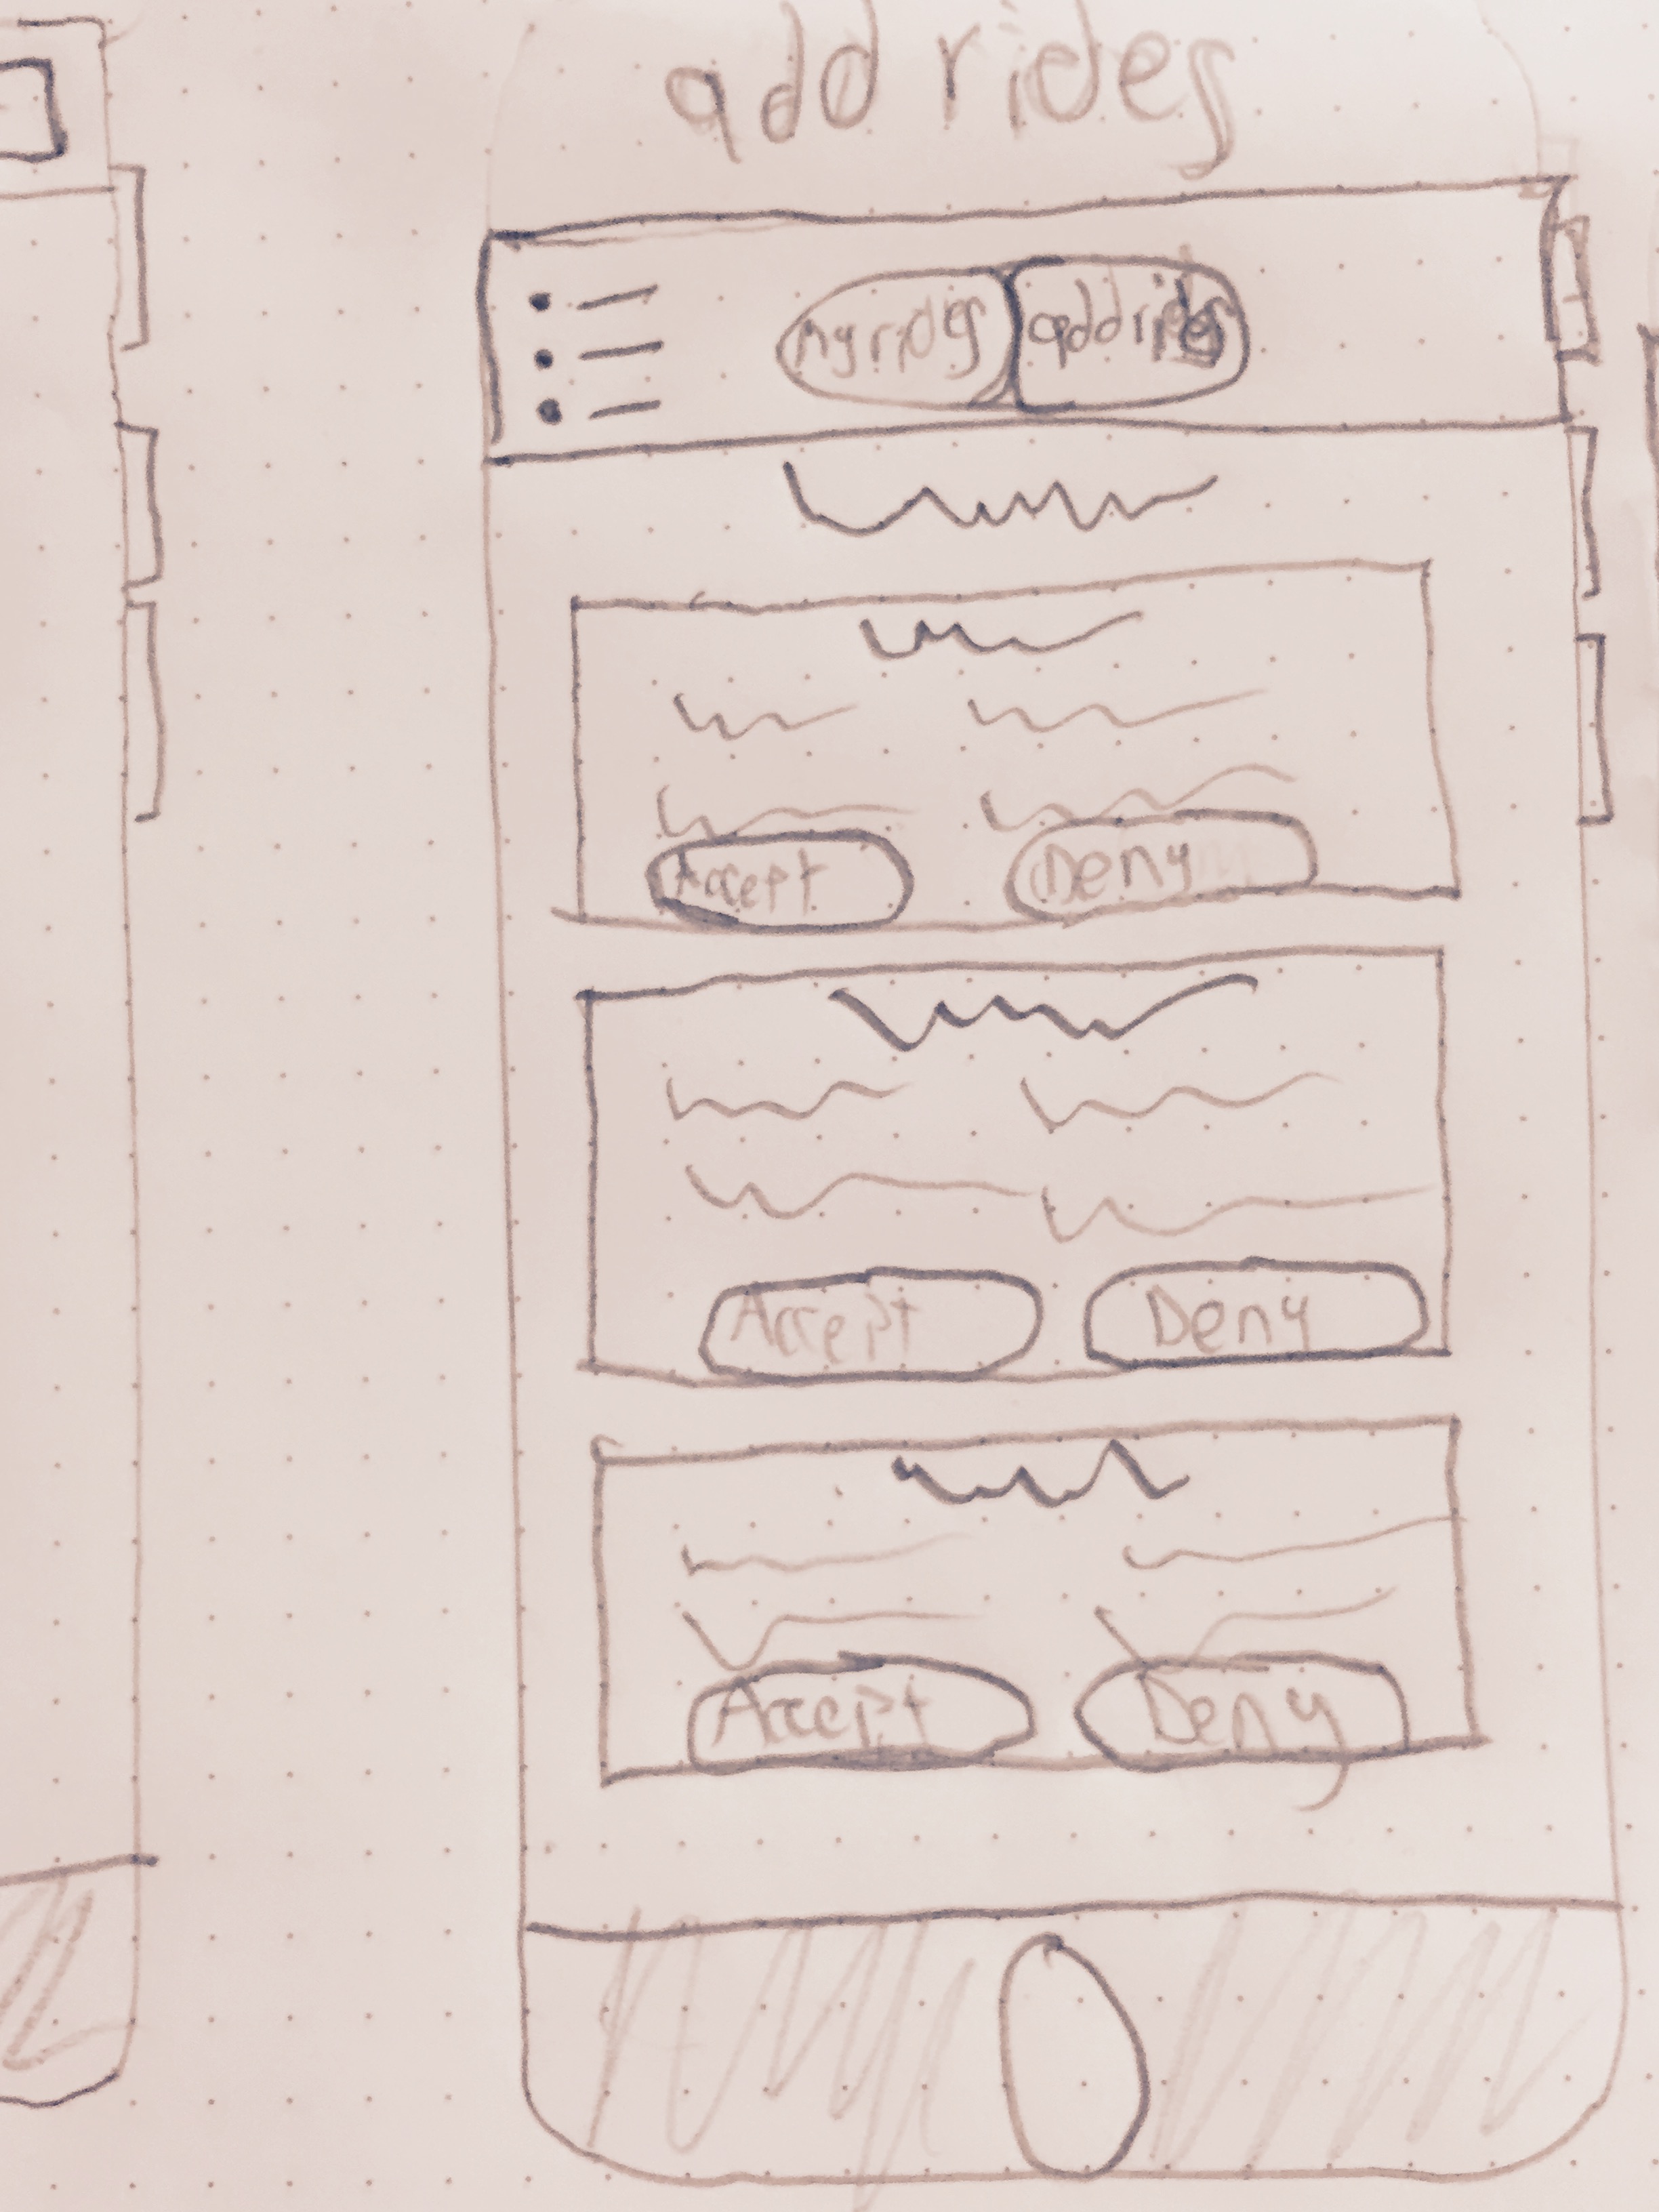 add rides
My rides add rides
Accept Deny
Accept Deny
Accept Deny